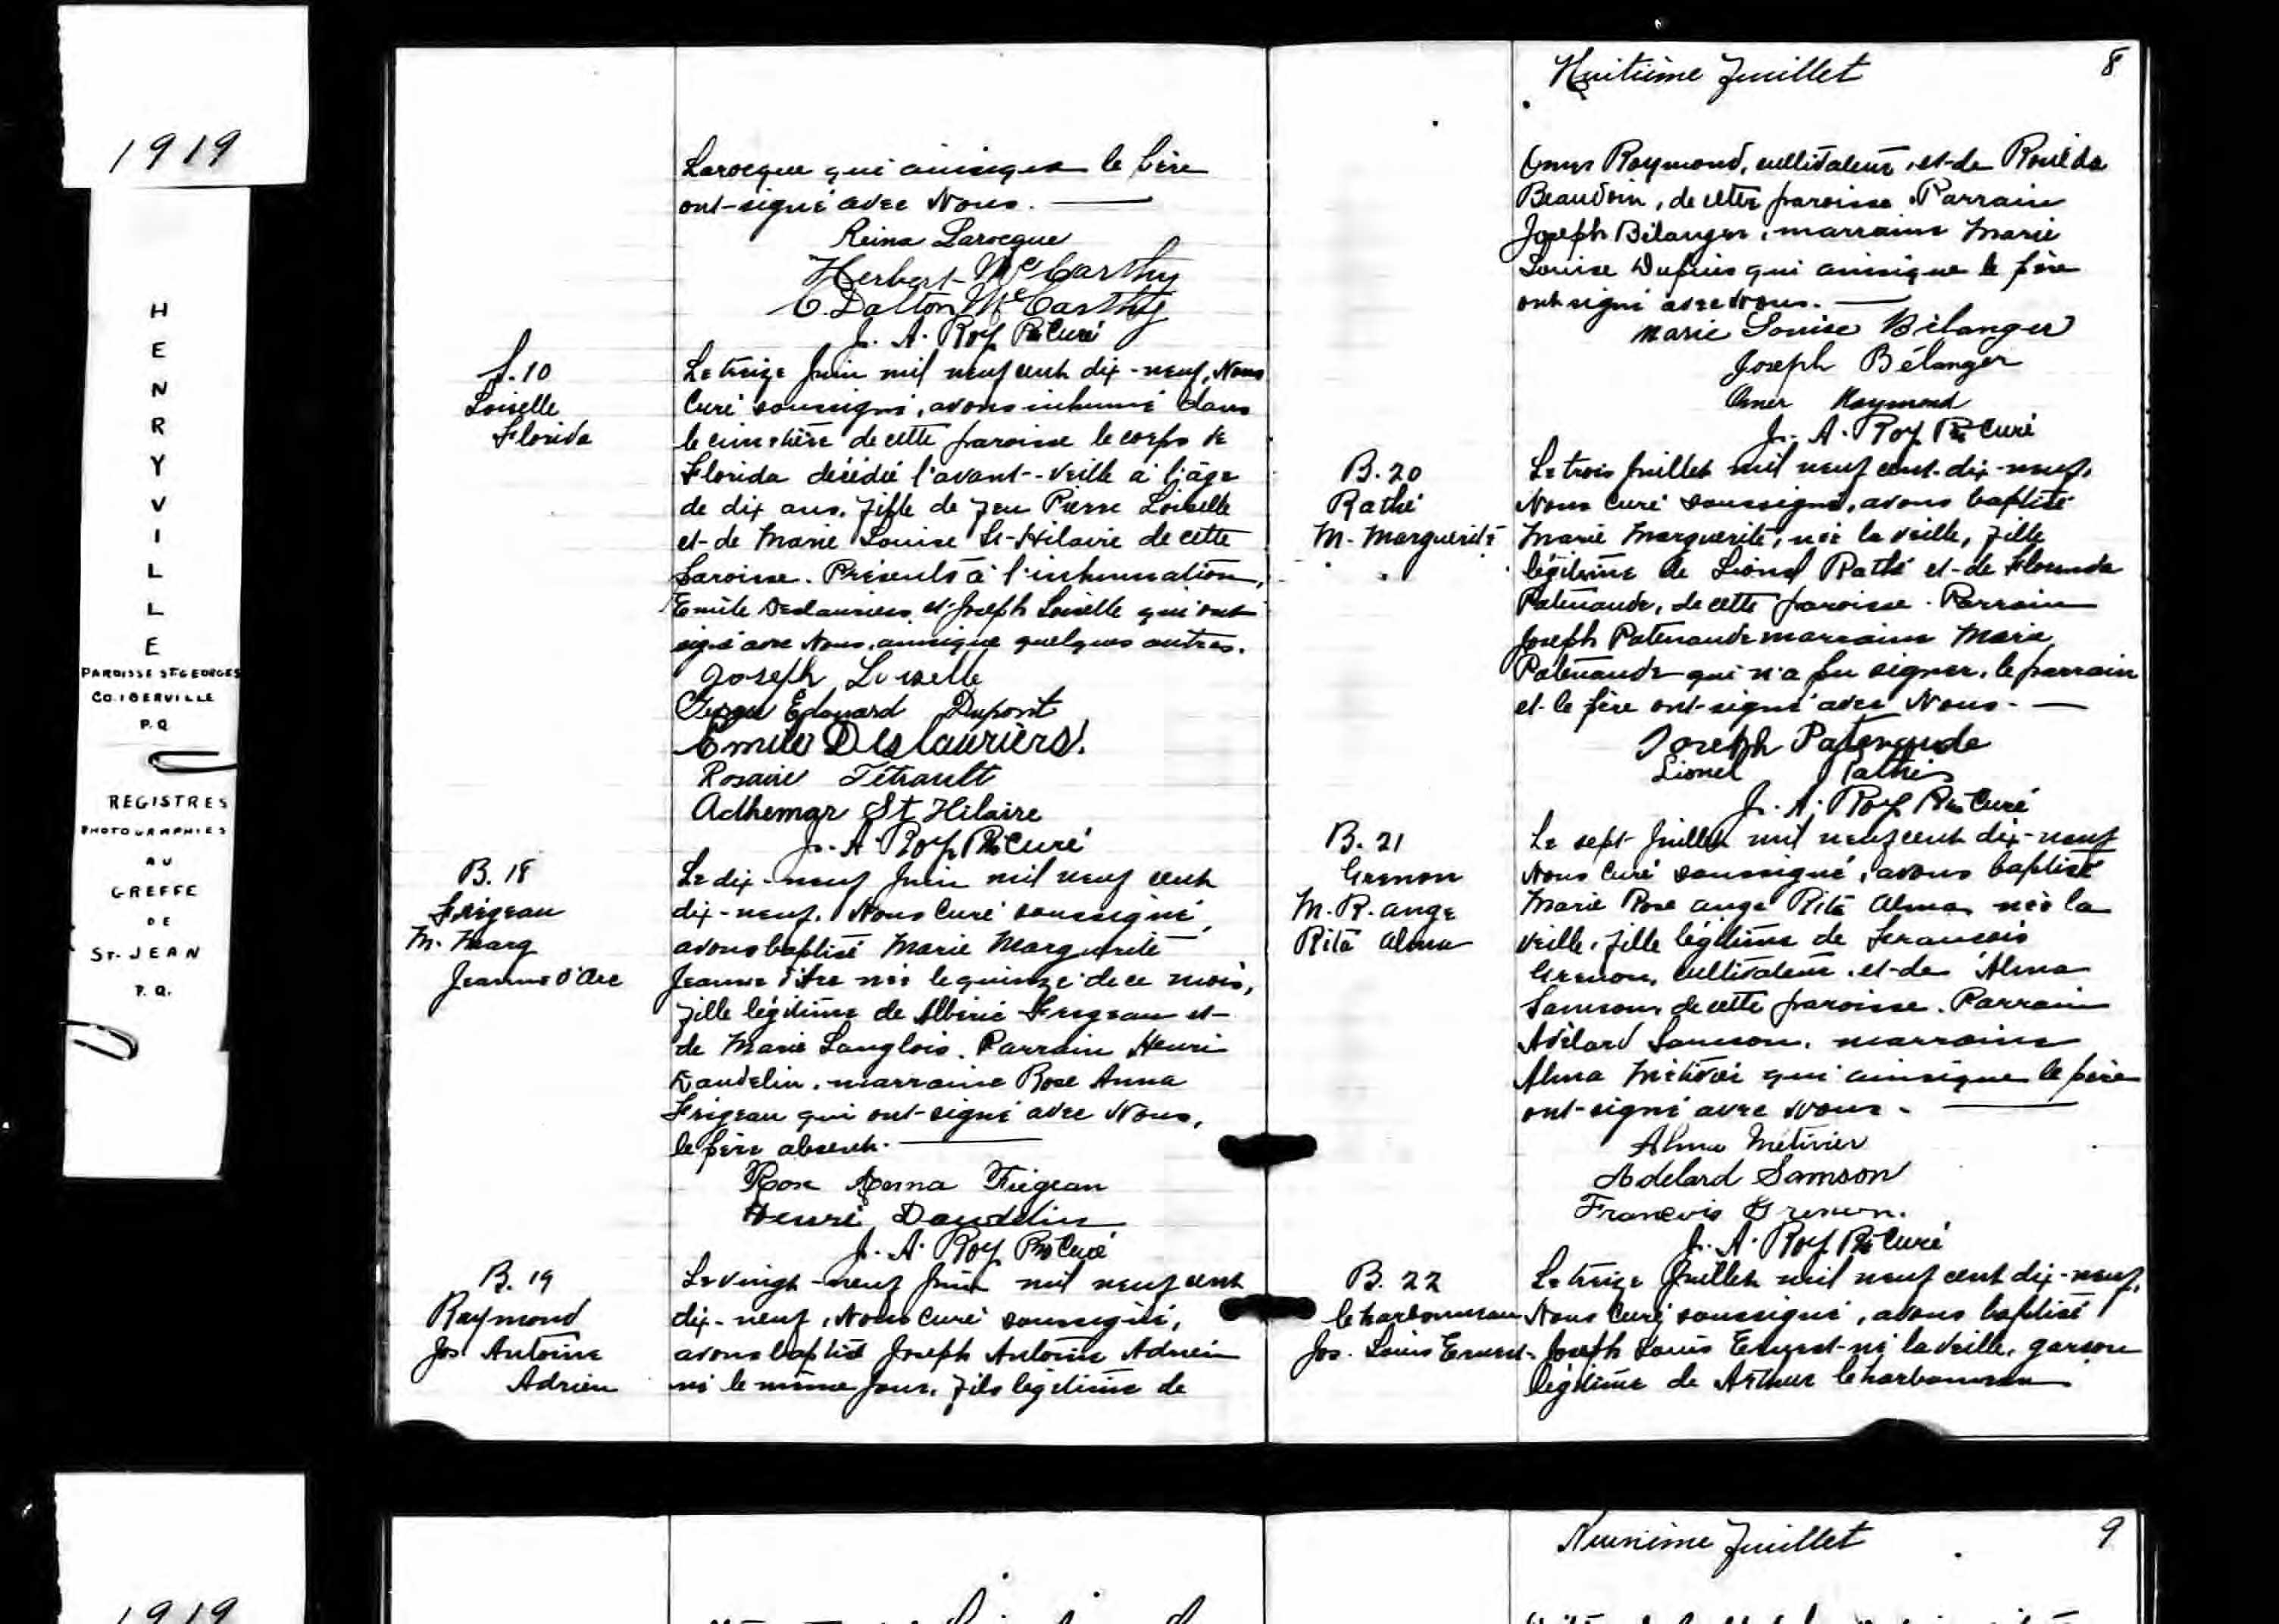 1919
HENRYVILLE
PAROISSE ST GEORGES
CO. IBERVILLE
P.Q.
REGISTRES
PHOTOGRAPHIES
AU
GREFFE
DE
ST-JEAN
P.Q.
Larocque qui ainsique le père
ont signé avec Nous.
Reina Larocque
Herbert McCarthy
C. Dalton McCarthy
J. A. Roy Ptre Curé
S. 10
Loiselle
Florida
Le treize Juin mil neuf cent dix-neuf, Nous
Curé soussigné, avons inhumé dans
le cimetière de cette paroisse le corps de
Florida décédée l'avant-veille à l'âge
de dix ans, fille de feu Pierre Loiselle
et de Marie Louise St-Hilaire de cette
paroisse. Présents à l'inhumation,
Emile Deslauriers et Joseph Loiselle qui ont
signé avec Nous, ainsique quelques autres.
Joseph Loiselle
Edouard Dupont
Emile Deslauriers.
Rosaire Tétrault
Adhemar St Hilaire
J. A. Roy Ptre Curé
B. 18
Frégeau
M. Marg
Jeanne d'Arc
Le dix-neuf Juin mil neuf cent
dix-neuf, Nous Curé soussigné,
avons baptisé Marie Marguerite
Jeanne d'Arc née le quinze de ce mois,
fille légitime de Albéric Frégeau et
de Marie Langlois. Parrain Henri
Daudelin, marraine Rose Anna
Frégeau qui ont signé avec Nous,
le père absent.
Rose Anna Frégeau
Henri Daudelin
J. A. Roy Ptre Curé
B. 19
Raymond
Jos Antoine
Adrien
Le vingt-neuf Juin mil neuf cent
dix-neuf, Nous Curé soussigné,
avons baptisé Joseph Antoine Adrien
né le même jour, fils légitime de
Huitième feuillet 8
Omer Raymond, cultivateur, et de
Beaudoin, de cette paroisse. Parrain
Joseph Bélanger, marraine Marie
Louise Dupuis qui ainsique le père
ont signé avec Nous.
Marie Louise Bélanger
Joseph Bélanger
Omer Raymond
J. A. Roy Ptre Curé
B. 20
Rathé
M. Marguerite
Le trois Juillet mil neuf cent dix-neuf,
Nous Curé soussigné, avons baptisé
Marie Marguerite, née la veille, fille
légitime de Lionel Rathé et de Florinda
Patenaude, de cette paroisse. Parrain
Joseph Patenaude marraine Marie
Patenaude qui n'a pu signer, le parrain
et le père ont signé avec Nous.
Joseph Patenaude
Lionel
J. A. Roy Ptre Curé
B. 21
Grenon
M. R. ange
Rita Alma
Le sept Juillet mil neuf cent dix-neuf
Nous Curé soussigné, avons baptisé
Marie Rose ange Rita Alma née la
veille, fille légitime de Francois
Grenon, cultivateur, et de Alma
Samson, de cette paroisse. Parrain
Adélard Samson, marraine
Alma Métivier qui ainsique le père
ont signé avec Nous.
Alma Métivier
Adelard Samson
Francois Grenon.
J. A. Roy Ptre Curé
B. 22
Charbonneau
Jos. Louis Ernest
Le treize Juillet mil neuf cent dix-neuf,
Nous Curé soussigné, avons baptisé
Joseph Louis Ernest né la veille, garson
légitime de Arthur Charbonneau
Neuvième feuillet 9
1919